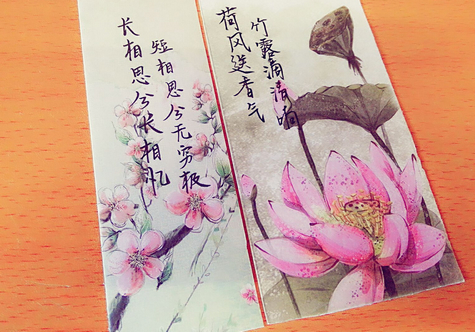 长相思兮长相忆
短相思兮无穷极
荷风送香气
竹露滴清响